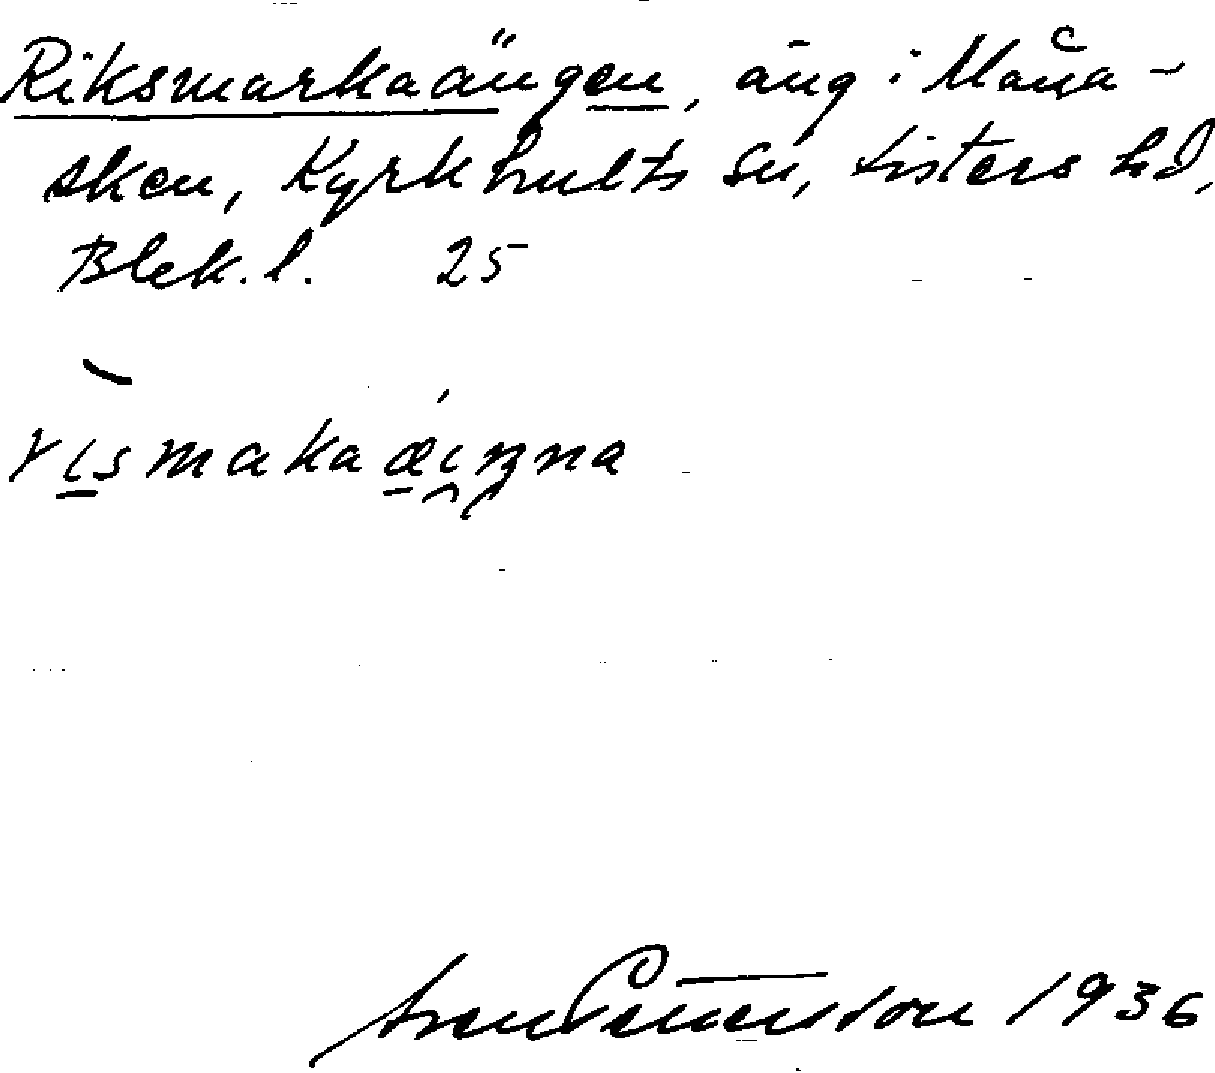 Riksmarkaängen, äng i Måna-
sken, Kyrkhults sn, Listers hd,
Blek. l. 25
rismakaæiŋna
Sven Benson 1936